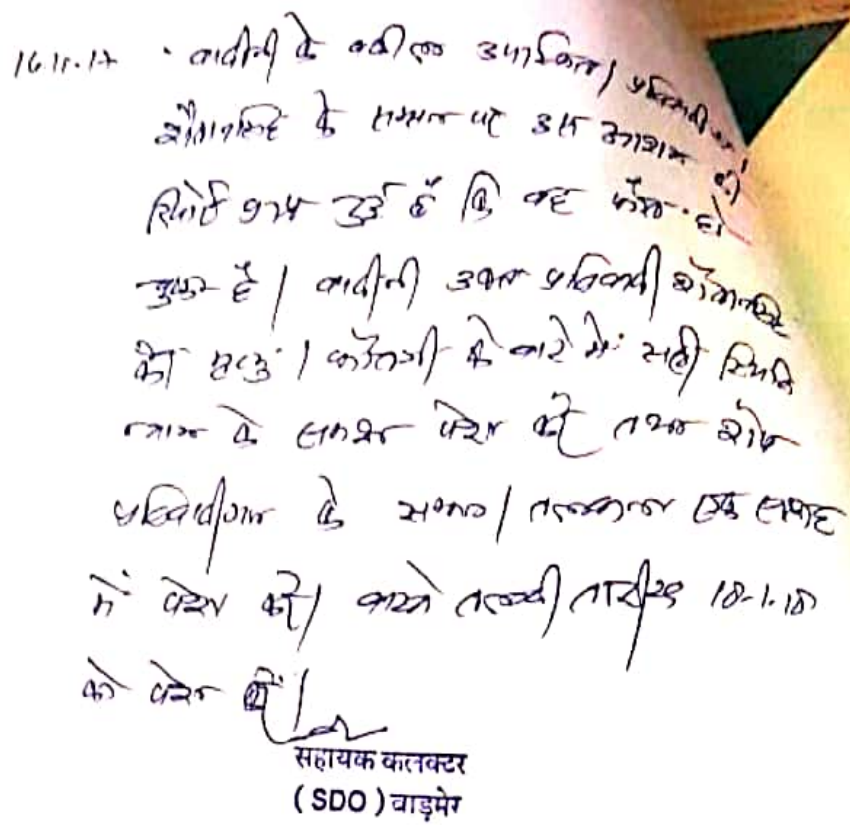 16.11.17 . वादीनी के वकील उपस्थित। प्रतिवादी
के सम्मन पर इस आशय की
रिपोर्ट प्राप्त हुई है कि वह फौत हो
चुका है। वादीनी उक्त प्रतिवादी
की मृत्यु / फौतगी के बारे में सही स्थिति
न्याया के समक्ष पेश करें तथा शेष
प्रतिवादीगण के सम्मन / तलबाना एक सप्ताह
में पेश करें। वास्ते तलबी तारीख 18-1-18
को पेश हो।
सहायक कलक्टर
( SDO ) बाड़मेर